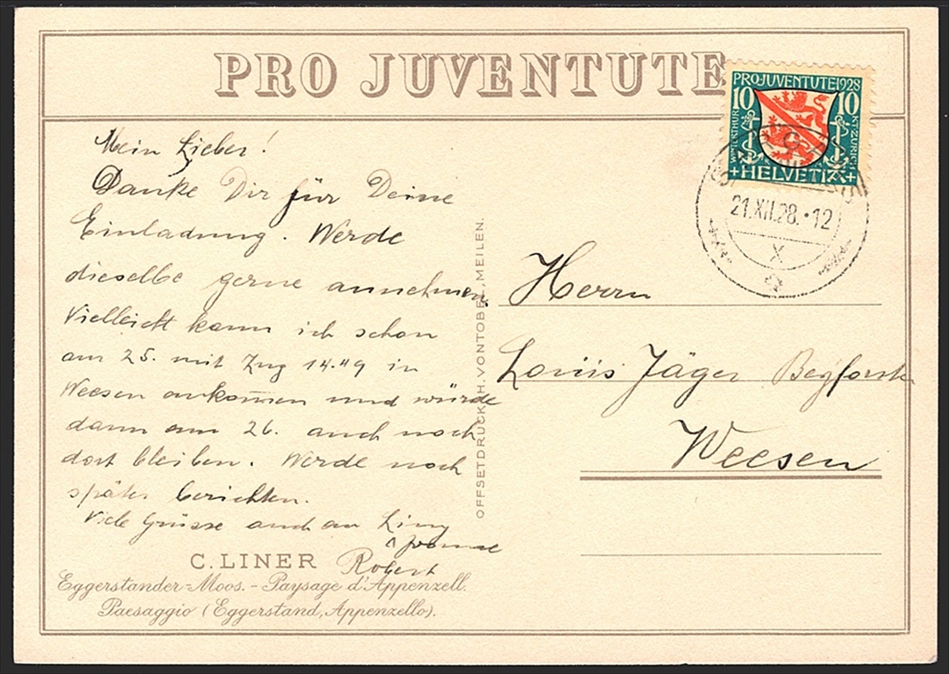 PRO JUVENTUTE
PRO JUVENTUTE 1928
10 10
WINTERTHUR
KT. ZÜRICH
+ HELVETIA +
21.XII.28.-12
X
Mein Lieber!
Danke Dir für Deine
Einladung. Werde
dieselbe gerne annehmen.
Vielleicht kann ich schon
am 25. mit Zug 14.49 in
Weesen ankommen und würde
dann am 26. auch noch
dort bleiben. Werde noch
später berichten.
Viele Grüsse auch an
Robert
OFFSETDRUCK H. VONTOBEL, MEILEN.
Herrn
Louis Jäger
Weesen
C. LINER
Eggerstander-Moos. - Paysage d'Appenzell.
Paesaggio (Eggerstand, Appenzello).